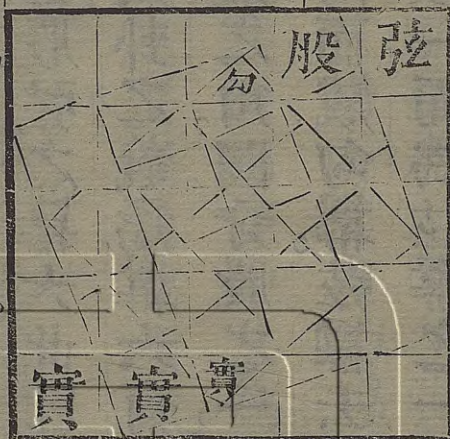 弦股勾
實實實